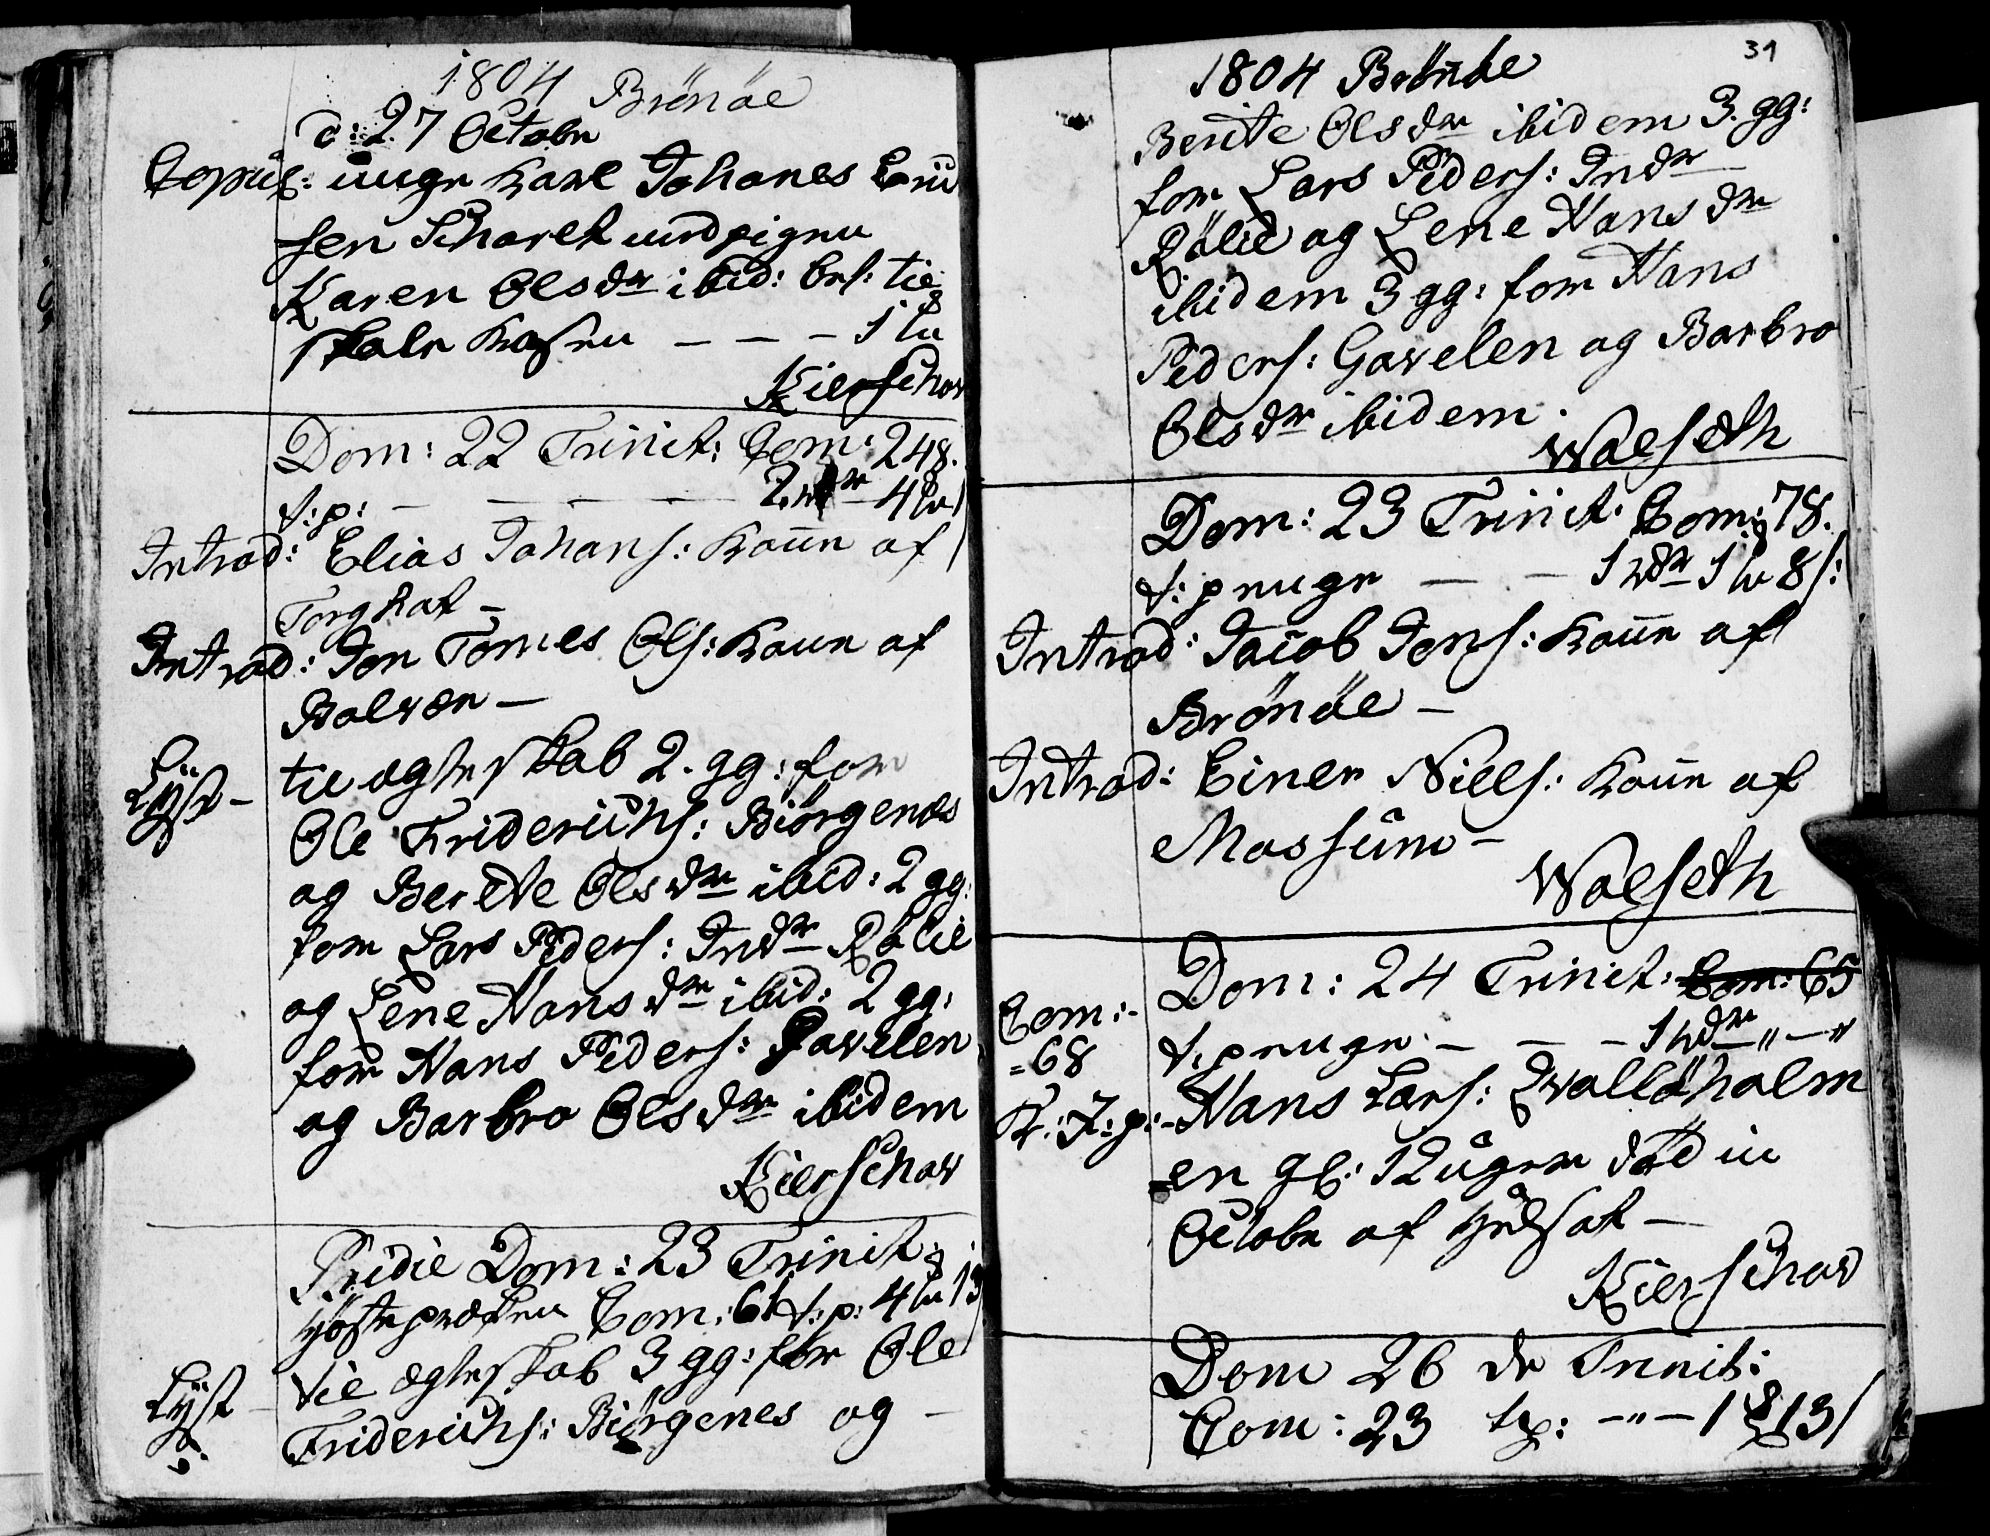 1804 Brönöe
d: 27 Octobr
Copul: unge Karl Johanes
sen Skaret med pigen
Karen Olsdr ibid: bet: til
skole kassen — — — 1 
Kierschow
Dom: 22 Trinit: Com: 248.
t: p: — — — — 2 rdr 4
Introd: Elias Johans: Kone af
Torghat —
Introd: Jon Tomes Ols: Kone af
Bolvær —
Lyst — til ægteskab 2. gg: for
Ole Friderichs: Biörgenæs
og Berette Olsdr ibid: 2 gg:
for Lars Peders: Indr Rölie
og Lene Hansdr ibid: 2 gg:
for Hans Peders: Gavelen
og Barbro Olsdr ibidem
Kierschow
Pridie Dom: 23 Trinit:
Höste præken Com: 61 t: p: 4 13
Lyst — til ægteskab 3 gg: for Ole
Friderichs: Biörgenes og —
31
1804 Brönöe
Berite Olsdr ibidem 3. gg:
for Lars Peders: Indr
Rölie og Lene Hansdr
ibidem 3 gg: for Hans
Peders: Gavelen og Barbro
Olsdr ibidem.
Walseth
Dom: 23 Trinit: Com: 78.
t: penge — — 1 rdr 1 8 s:
Introd: Jacob Jons: Kone af
Brönöe —
Introd: Einer Niels: Kone af
Mossum —
Walseth
Dom: 24 Trinit: Com: 65
Com: - 68
t: penge — — — 1 rdr „ — „
Hans Lars: Qvalöholm
en gl: 12 uger död in
Octobr af
Kierschow
Dom 26 de Trinit:
Com: 23 tp: — " — 1 13 s